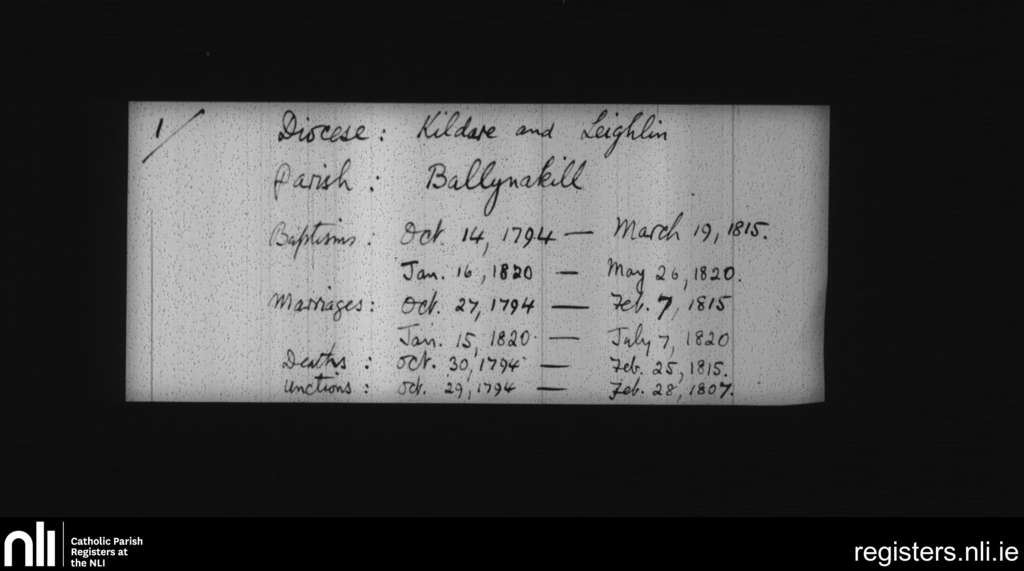 1/
Diocese: Kildare and Leighlin
Parish: Ballynakill
Baptisms: Oct. 14, 1794 — March 19, 1815.
Jan. 16, 1820 — May 26, 1820.
Marriages: Oct. 27, 1794 — Feb. 7, 1815
Jan. 15, 1820 — July 7, 1820
Deaths: Oct. 30, 1794 — Feb. 25, 1815.
Unctions: Oct. 29, 1794 — Feb. 28, 1807.
nli
Catholic Parish
Registers at
the NLI
registers.nli.ie